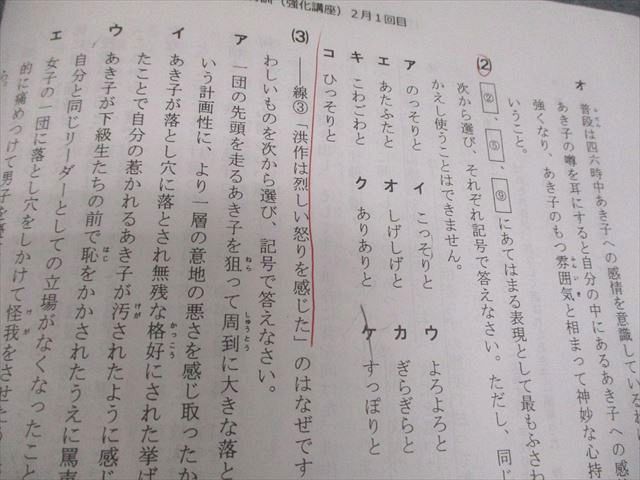 訓（強化講座）２月１回目
オ 普段は四六時中あき子への感情を意識している
あき子の噂を耳にすると自分の中にあるあき子への感
強くなり、あき子のもつ雰囲気と相まって神妙な心持
いうこと。
⑵ ②、⑤、⑨にあてはまる表現として最もふさわ
次から選び、それぞれ記号で答えなさい。ただし、同じ
かえし使うことはできません。
ア のっそりと イ こっそりと ウ よろよろと
エ あたふたと オ しげしげと カ ぎらぎらと
キ こわごわと ク ありありと ケ すっぽりと
コ ひっそりと
⑶ ――線③「洪作は烈しい怒りを感じた」のはなぜです
わしいものを次から選び、記号で答えなさい。
ア 一団の先頭を走るあき子を狙って周到に大きな落と
いう計画性に、より一層の意地の悪さを感じ取ったか
イ あき子が落とし穴に落とされ無残な格好にされた挙げ
たことで自分の惹かれるあき子が汚されたように感じ
ウ あき子が下級生たちの前で恥をかかされたうえに罵声
自分と同じリーダーとしての立場がなくなったこと
エ 女子の一団に落とし穴をしかけて怪我をさせた
的に痛めつけて男子を